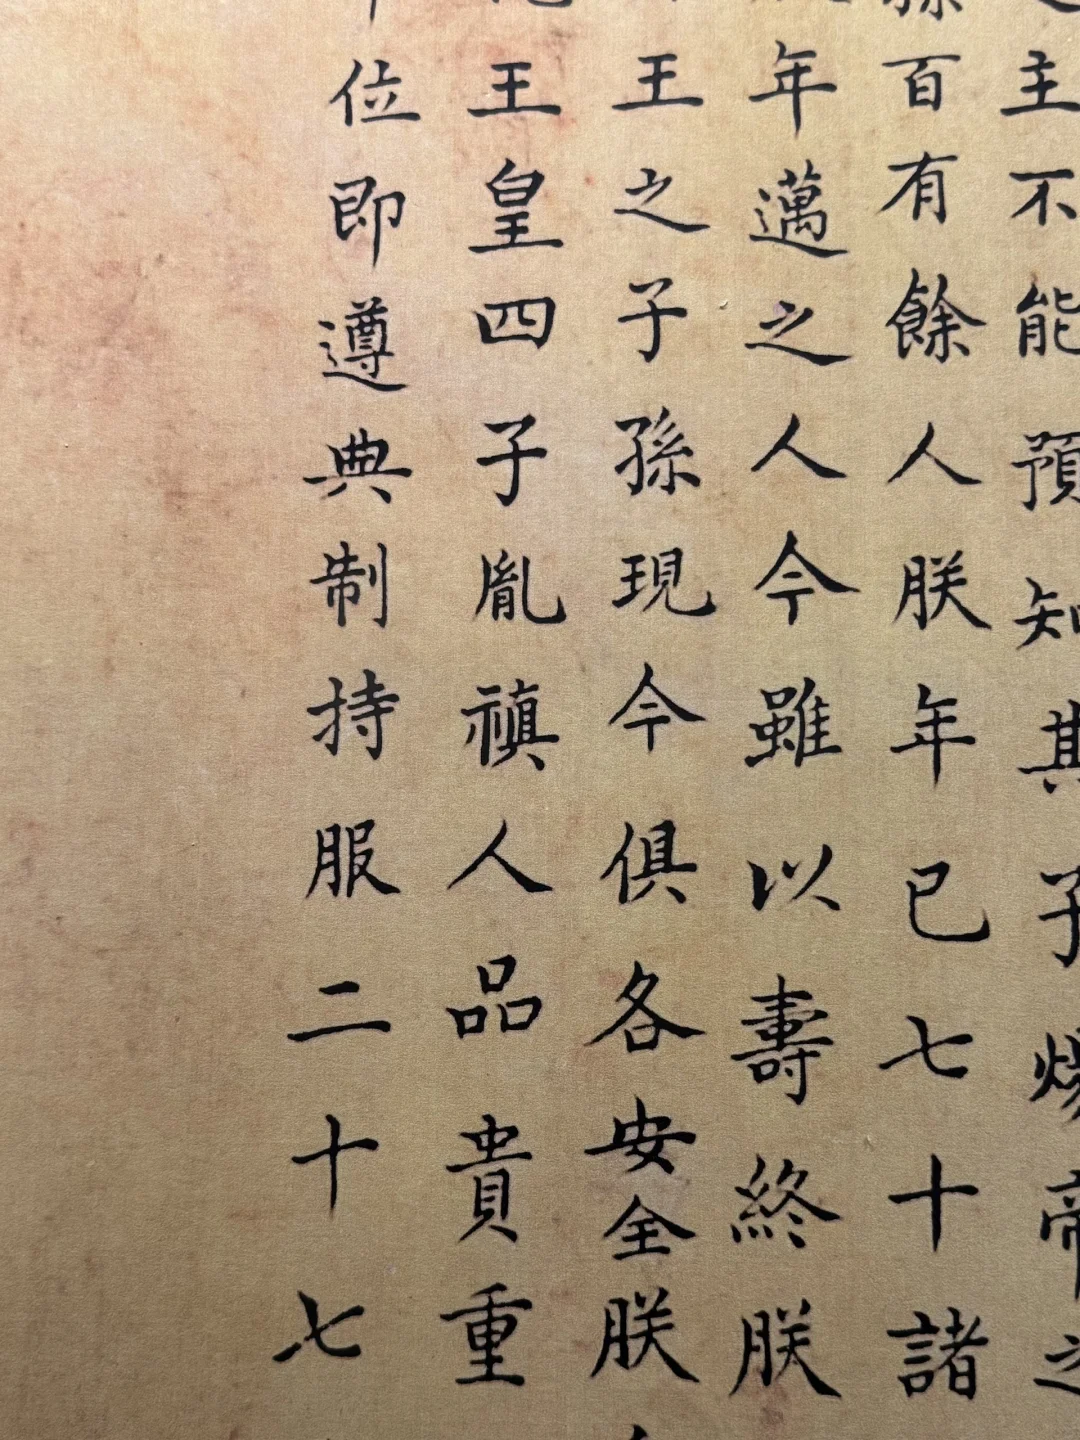 主不能預知其子煬帝之
孫百有餘人朕年已七十諸
年邁之人今雖以壽終朕
王之子孫現今俱各安全朕
王皇四子胤禛人品貴重
位即遵典制持服二十七